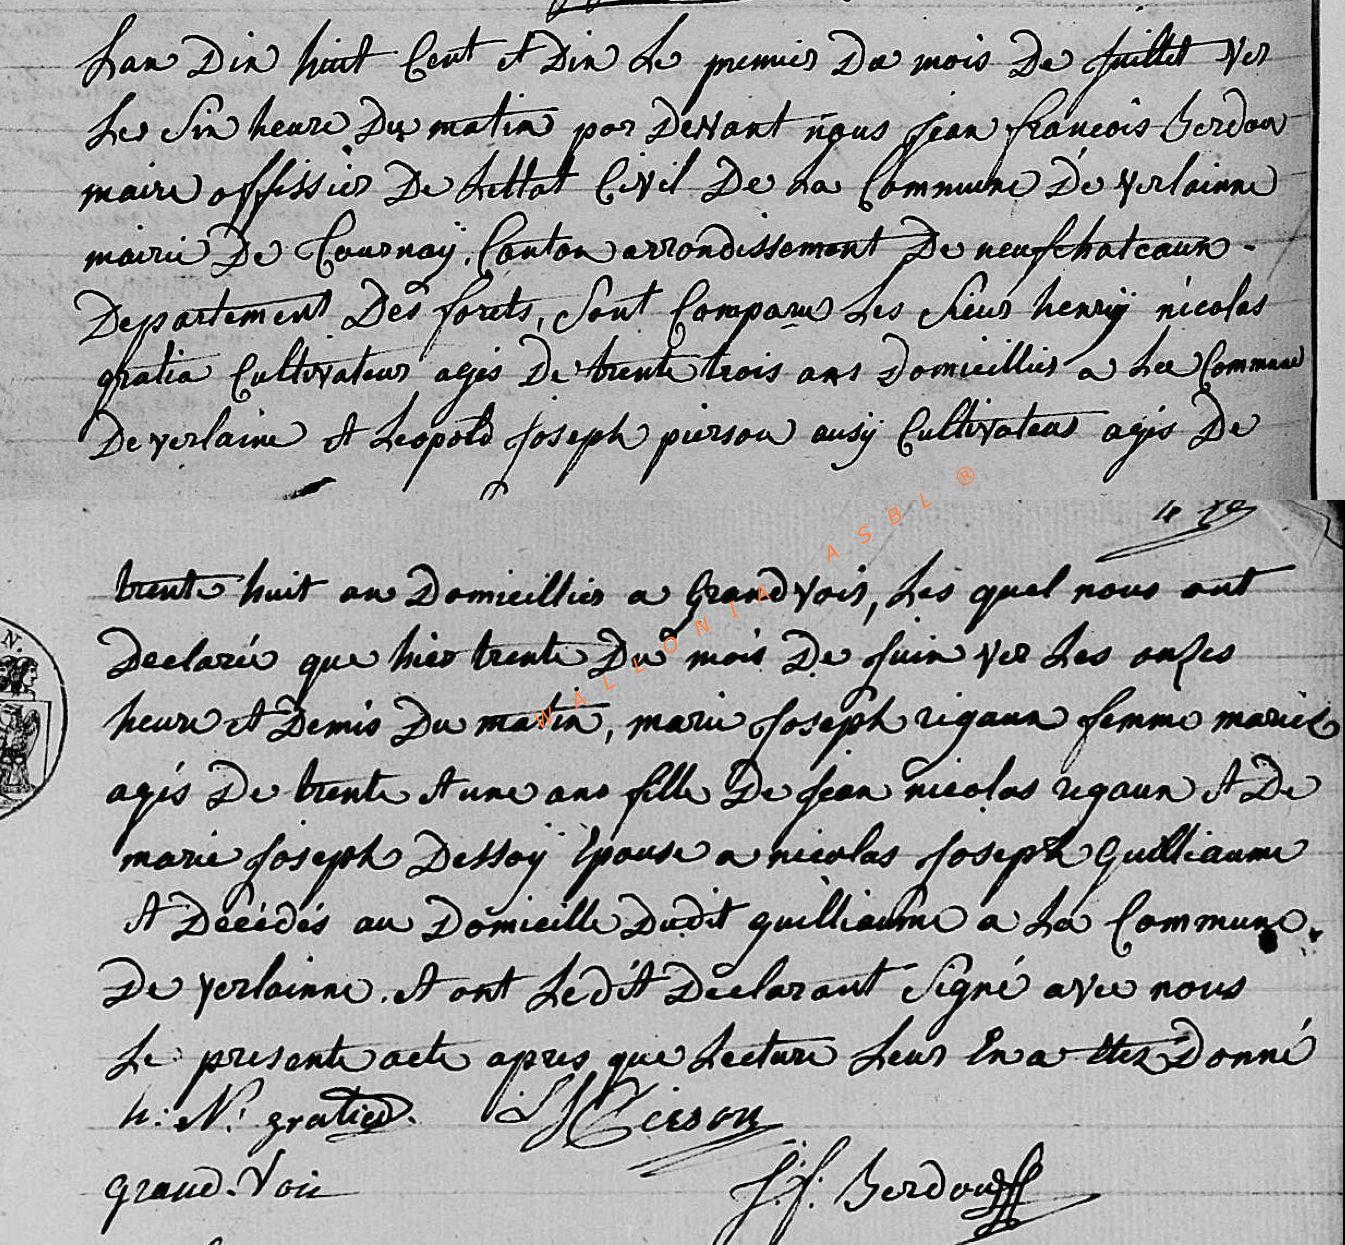 Lan Dix huit Cent et Dix Le premier Du mois De juillet ver
Les Six heure Du matin par Devant nous jean francois Berdou
maire offissier De Lettat Civil De La Commune De verlainne
mairie De Tournaÿ, Canton arrondissement De neufchateaux -
Departement Des forets, Sont Comparus Les Sieur henrÿ nicolas
gratia Cultivateur agés De trente trois ans Domicillier a La Commune
De verlaine et Leopold joseph pierson ausÿ Cultivateur agés De
trente huit an Domicillier a Grandvoir, Les quel nous ont
Declaréé que hier trente Du mois De juin ver Les onzes
heure et Demis Du matin, marie joseph rigaux femme mariée
agés De trente et une ans fille De jean nicolas rigaux et De
marie joseph Dessoÿ Epouse a nicolas joseph Guilliaume
et Décédés au Domicille Dudit guilliaume a La Commune
De verlainne. et ont Ledit Déclarant Signé avec nous
Le presente acte apres que Lecture Leur En a ettez Donné
h: N: gratia. L J Pierson
grand-Voir J: f: Berdou
WALLONIA ASBL ®